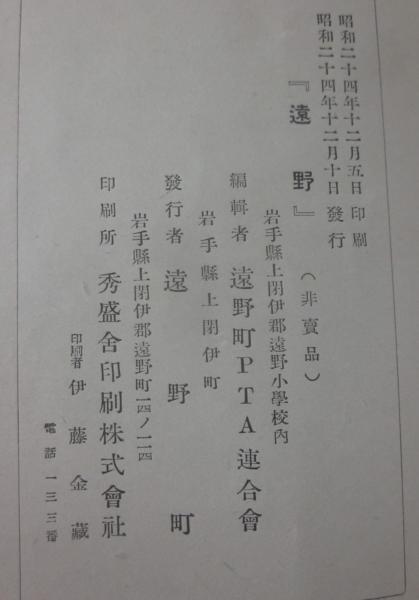 昭和二十四年十二月五日印刷
昭和二十四年十二月十日發行
『遠野』(非賣品)
岩手縣上閉伊郡遠野小學校內
編輯者 遠野町PTA連合會
岩手縣上閉伊町
發行者 遠野町
岩手縣上閉伊郡遠野町一四ノ一四
印刷所 秀盛舍印刷株式會社
印刷者 伊藤金藏
電話一三三番